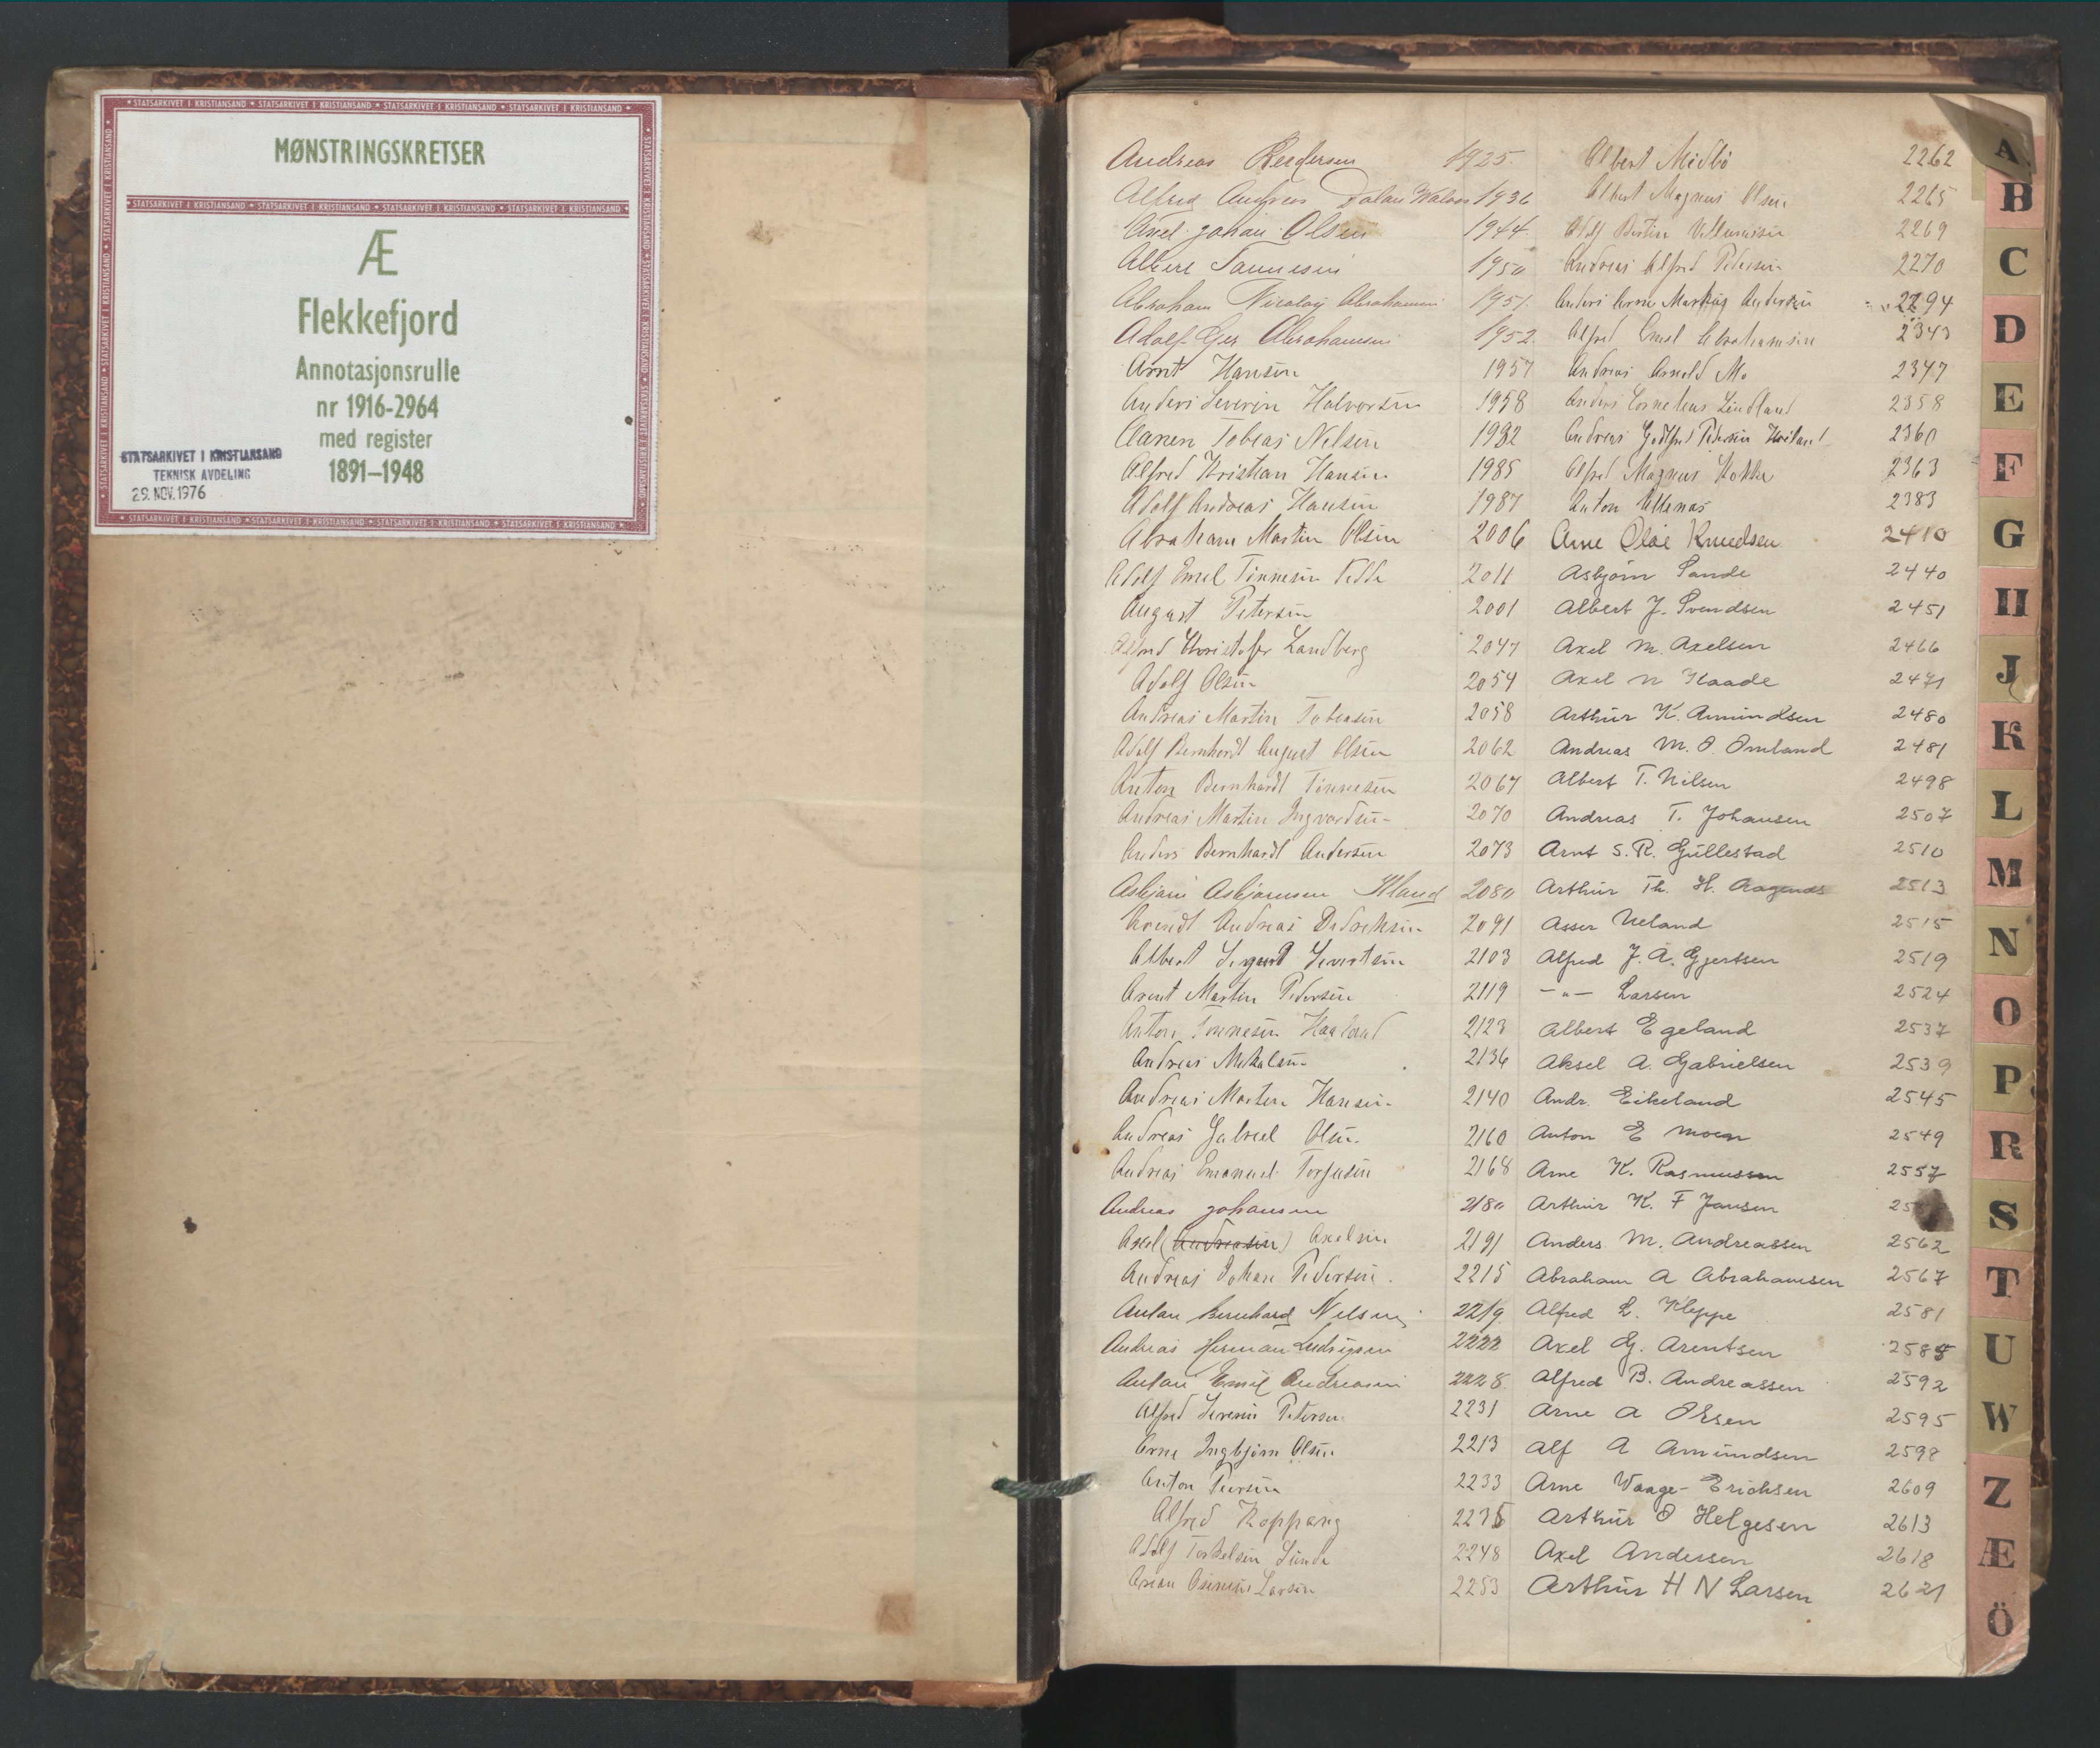 STATSARKIVET I KRISTIANSAND
MØNSTRINGSKRETSER
Æ
Flekkefjord
Annotasjonsrulle
nr 1916-2964
med register
1891–1948
STATSARKIVET I KRISTIANSAND
TEKNISK AVDELING
29. NOV. 1976
Andreas 1925
Alfred Andreas 1936
Axel Johan Olsen 1944
1950
Abraham Nicolay Abrahamsen 1951
Adolf Abrahamsen 1952
Arnt Hansen 1957
Anders Severin Halvorsen 1958
Tobias Nilsen 1982
Alfred Kristian Hansen 1985
Adolf Andreas Hansen 1987
Abraham Martin Olsen 2006
Adolf Emil Tønnesen 2011
August Petersen 2001
Alfred Christofer Landberg 2047
Adolf Olsen 2054
Andreas Martin Tobiasen 2058
Adolf Bernhard August Olsen 2062
Anton Bernhardt Tønnesen 2067
Andreas Martin Ingvardsen 2070
Anders Bernhardt Andersen 2073
Asbjørn Asbjørnsen 2080
Andreas Didriksen 2091
Albert Sigurd Sivertsen 2103
Arent Martin Pedersen 2119
Anton Tønnesen Haaland 2123
Andreas Mikalsen 2136
Andreas Martin Hansen 2140
Andreas Gabriel Olsen 2160
Andreas Emanuel Torjusen 2168
Andreas Johansen 2180
Axel (Andreasen) Axelsen 2191
Andreas Johan Pedersen 2215
Anton Bernhard Nilsen 2219
Andreas Herman Ludvigsen 2222
Anton Emil Andreasen 2228
Alfred Severin Petersen 2231
Arne Ingbjørn Olsen 2213
Anton Iversen 2233
Alfred Koppang 2235
Adolf Torkelsen Sunde 2248
Larsen 2253
Albert Midbö 2262
Albert Magnus Olsen 2265
Adolf Bertin Villumsen 2269
Andreas Alfred Pedersen 2270
Anders Arne Markus Andersen 2294
Alfred Emil Abrahamsen 2343
Andreas Arnold Mo 2347
Anders Cornelius Lindland 2358
Andreas Godtfred Pedersen 2360
Alfred Magnus 2363
Anton 2383
Arne Olai Knudsen 2410
Asbjørn Sande 2440
Albert J. Svendsen 2451
Axel M. Axelsen 2466
Axel N Haade 2471
Arthur K. Amundsen 2480
Andreas M. O. Omland 2481
Albert T. Nilsen 2498
Andreas T. Johansen 2507
Arnt S. R. Gullestad 2510
Arthur Th. H. 2513
Asser Ueland 2515
Alfred J. A. Gjertsen 2519
– " – Larsen 2524
Albert Egeland 2537
Aksel A. Gabrielsen 2539
Andr. Eikeland 2545
Anton E Moen 2549
Arne K. Rasmussen 2557
Arthur K. F Jansen 25
Anders M. Andreassen 2562
Abraham A Abrahamsen 2567
Alfred L. Kleppe 2581
Axel G. Arentsen 2585
Alfred B. Andreassen 2592
Arne A Olsen 2595
Alf A Amundsen 2598
Arne Waage-Erichsen 2609
Arthur O Helgesen 2613
Axel Andersen 2618
Arthur H N Larsen 2621
A
B
C
D
E
F
G
H
J
K
L
M
N
O
P
R
S
T
U
W
Z
Æ
Ö